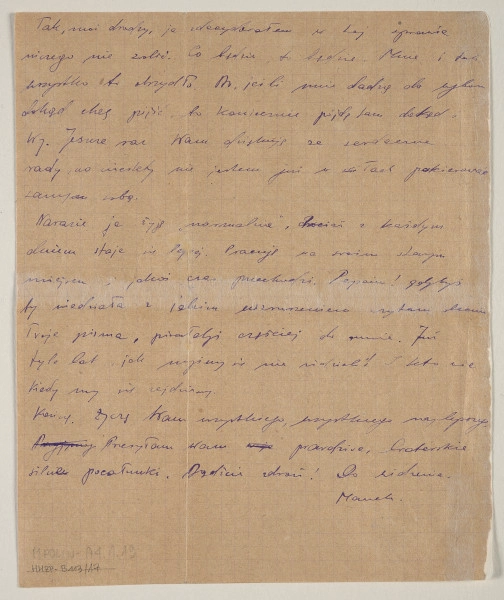 Tak, moi drodzy, ja zdecydowałem w tej sprawie
niczego nie robić. Co będzie, to będzie. Mnie i tak
wszystko to obrzydło. A, jeśli mnie dadzą do wyboru
dokąd chcę pójść, to koniecznie pójdę tam dokąd i
Wy. Jeszcze raz Wam dziękuję za serdeczne
rady, no niestety nie jestem już w siłach pokierować
samym sobą.
Narazie ja żyję "normalnie", choć z każdym
dniem staje się lżej. Pracuję na swoim starym
miejscu i jakoś czas przechodzi. Pepciu! gdybyś
ty wiedziała z jakim wzruszeniem czytam
Twoje pisma, pisałabyś częściej do mnie. Już
tyle lat jak myśmy się nie widzieli i kto wie
kiedy my się zejdziemy.
Kończę. Życzę Wam wszystkiego, wszystkiego najlepszego.
Przesyłam Wam prawdziwe, braterskie
silne pocałunki. Bądźcie zdrowi! Do widzenia.
Manek.